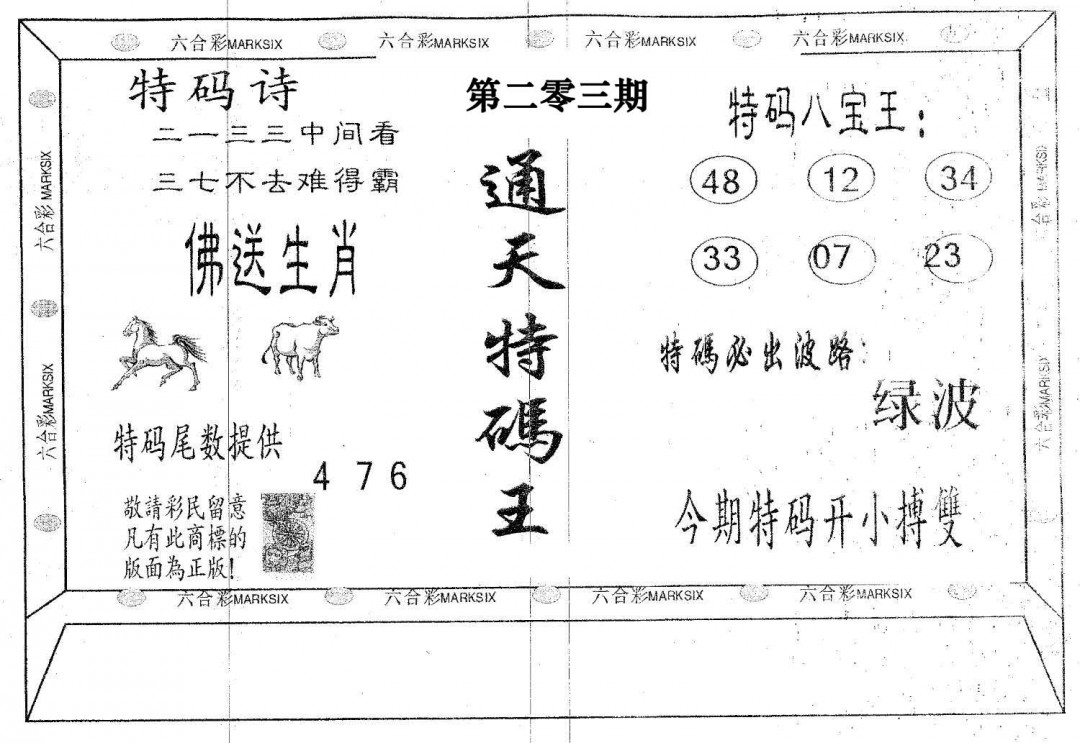 六合彩MARKSIX 六合彩MARKSIX 六合彩MARKSIX 六合彩MARKSIX
第二零三期
特码诗
二一三三中间看
三七不去难得霸
佛送生肖
特码尾数提供
4 7 6
敬請彩民留意
凡有此商標的
版面為正版!
通天特碼王
特码八宝王:
48 12 34
33 07 23
特碼必出波路:
绿波
今期特码开小搏雙
六合彩MARKSIX
六合彩MARKSIX
六合彩MARKSIX
六合彩MARKSIX
六合彩MARKSIX 六合彩MARKSIX 六合彩MARKSIX 六合彩MARKSIX